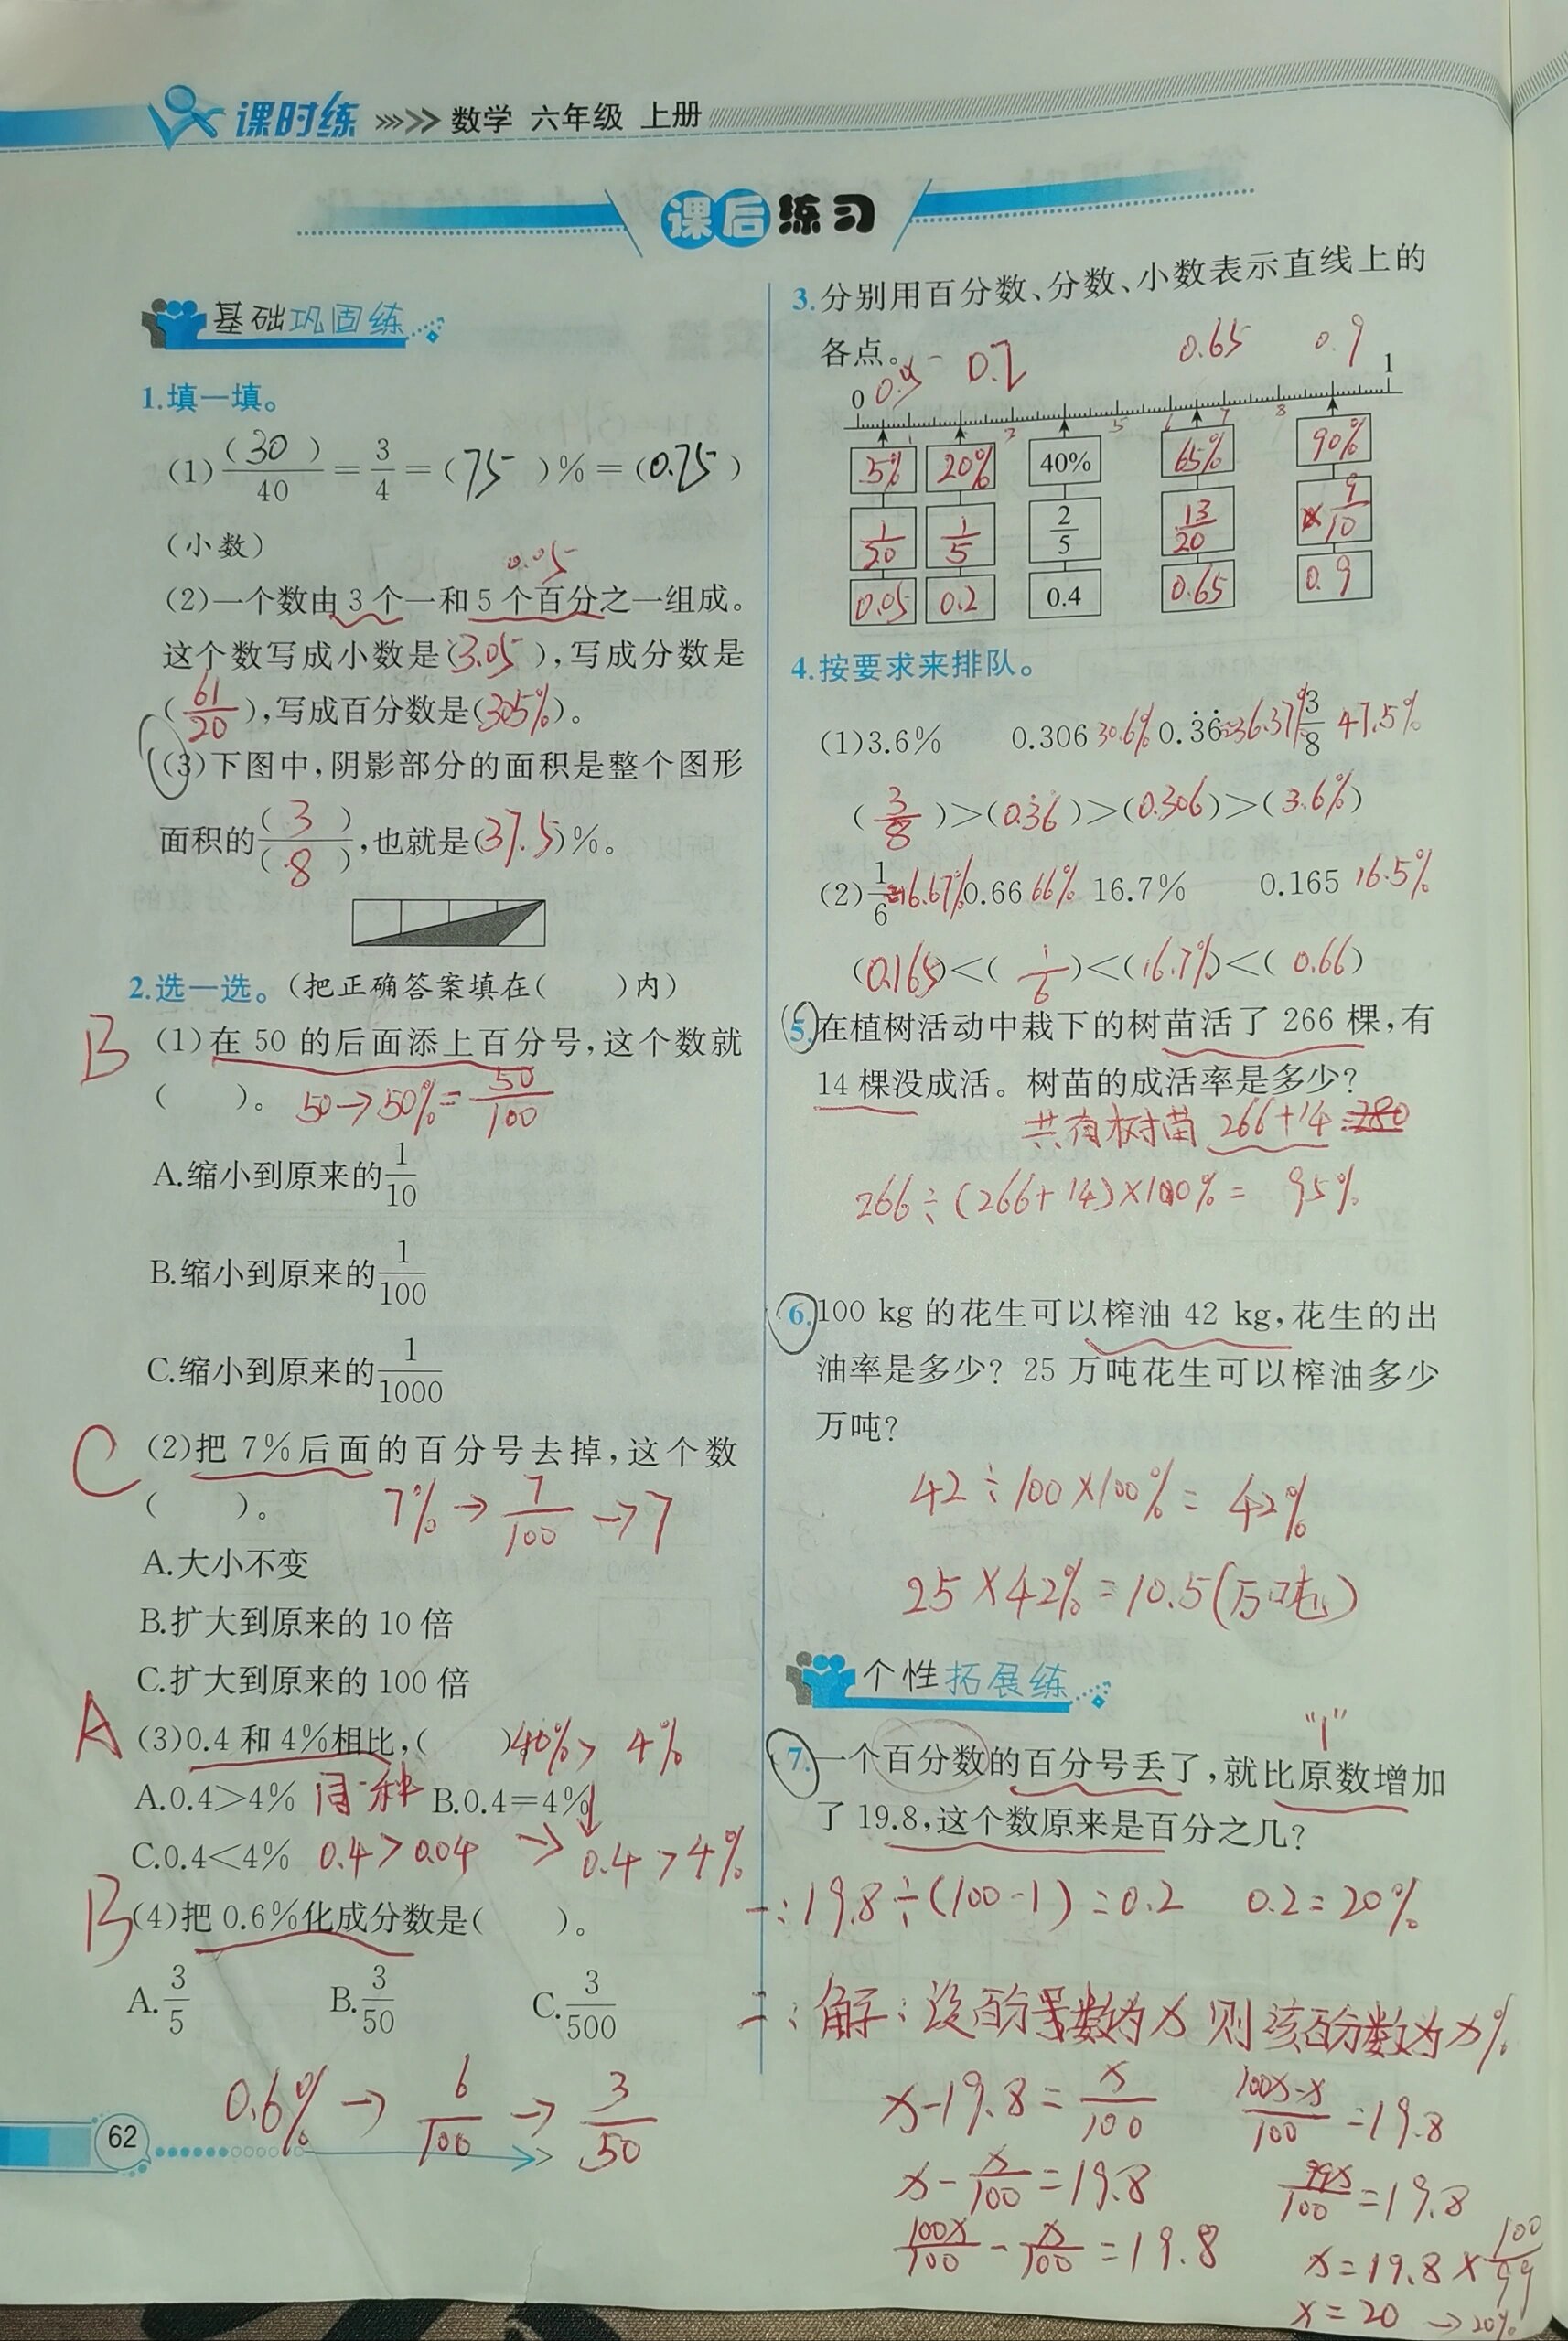 课时练 数学 六年级 上册
课后练习
基础巩固练
1.填一填。
(1) (30)/40 = 3/4 = (75)% = (0.75)
(小数)
0.05
(2)一个数由3个一和5个百分之一组成。
这个数写成小数是(3.05),写成分数是
(61/20),写成百分数是(305%)。
(3)下图中,阴影部分的面积是整个图形
面积的(3)/(8),也就是(37.5)%。
2.选一选。(把正确答案填在( )内)
B (1)在 50 的后面添上百分号,这个数就
( )。 50→50%=50/100
A.缩小到原来的1/10
B.缩小到原来的1/100
C.缩小到原来的1/1000
C (2)把 7%后面的百分号去掉,这个数
( )。 7%→7/100→7
A.大小不变
B.扩大到原来的 10 倍
C.扩大到原来的 100 倍
A (3)0.4 和 4%相比,( ) 40%> 4%
A.0.4>4% 同种 B.0.4=4%
C.0.4<4% 0.4>0.04 → 0.4>4%
B (4)把 0.6%化成分数是( )。
A.3/5 B.3/50 C.3/500
0.6%→6/100→3/50
62
3.分别用百分数、分数、小数表示直线上的
各点。
0.2 0.65 0.9
0 1
5% 20% 40% 65% 90%
1/20 1/5 2/5 13/20 9/10
0.05 0.2 0.4 0.65 0.9
4.按要求来排队。
(1)3.6% 0.306 30.6% 0.3̇6̇≈36.37% 3/8 47.5%
(3/8)>(0.3̇6̇)>(0.306)>(3.6%)
(2)1/6≈16.67% 0.66 66% 16.7% 0.165 16.5%
(0.165)<(1/6)<(16.7%)<(0.66)
5.在植树活动中栽下的树苗活了 266 棵,有
14 棵没成活。树苗的成活率是多少?
共有树苗 266+14=280
266÷(266+14)×100%= 95%
6.100 kg 的花生可以榨油 42 kg,花生的出
油率是多少? 25 万吨花生可以榨油多少
万吨?
42÷100×100%= 42%
25×42%=10.5(万吨)
个性拓展练
“1”
7.一个百分数的百分号丢了,就比原数增加
了 19.8,这个数原来是百分之几?
一:19.8÷(100-1)=0.2 0.2=20%
二:解:设百分号数为x 则该百分数为x%
x-19.8=x/100 (100x-x)/100=19.8
x-x/100=19.8 99x/100=19.8
100x/100-x/100=19.8 x=19.8×100/99
x=20 →20%